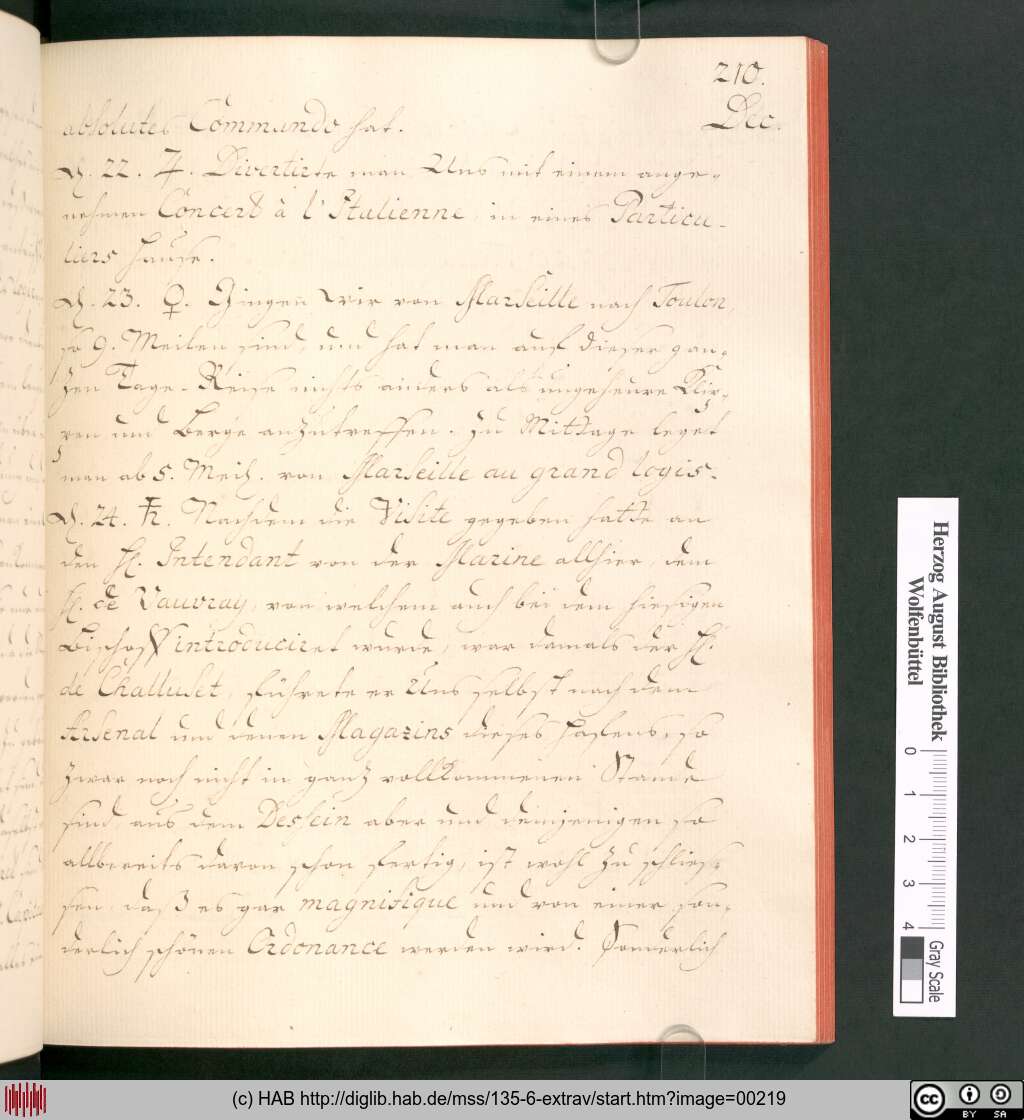 210.
Dec.
absolutes Commando hat.
d. 22. ♃. Divertirte man Uns mit einem ange-
nehmen Concert à l'Italienne, in eines Particu-
liers Hause.
d. 23. ♀. Gingen Wir von Marseille nach Toulon,
so 9. Meilen sind, und hat man auf dieser gan-
zen Tage-Reise nichts anders als ungeheure Klip-
pen und Berge anzutreffen. Zu Mittage leget
man ab 5. Meil. von Marseille au grand logis.
d. 24. ♄. Nachdem die Visite gegeben hatte an
den H. Intendant von der Marine allhier, dem
H. de Vauvray, von welchem auch bei dem hiesigen
Bischoff introduciret wurde, war damals der H.
de Challuset, führete er Uns selbst nach dem
Arsenal und denen Magazins dieses Hafens, so
zwar noch nicht in ganz vollkommenen Stande
sind, aus dem Dessein aber und demjenigen so
allbereits davon schon fertig, ist wohl zu schlies-
sen, daß es gar magnifique und von einer son-
derlich schönen Ordonance werden wird. Sonderlich
Herzog August Bibliothek
Wolfenbüttel
0 1 2 3 4
Gray Scale
(c) HAB http://diglib.hab.de/mss/135-6-extrav/start.htm?image=00219
cc BY SA